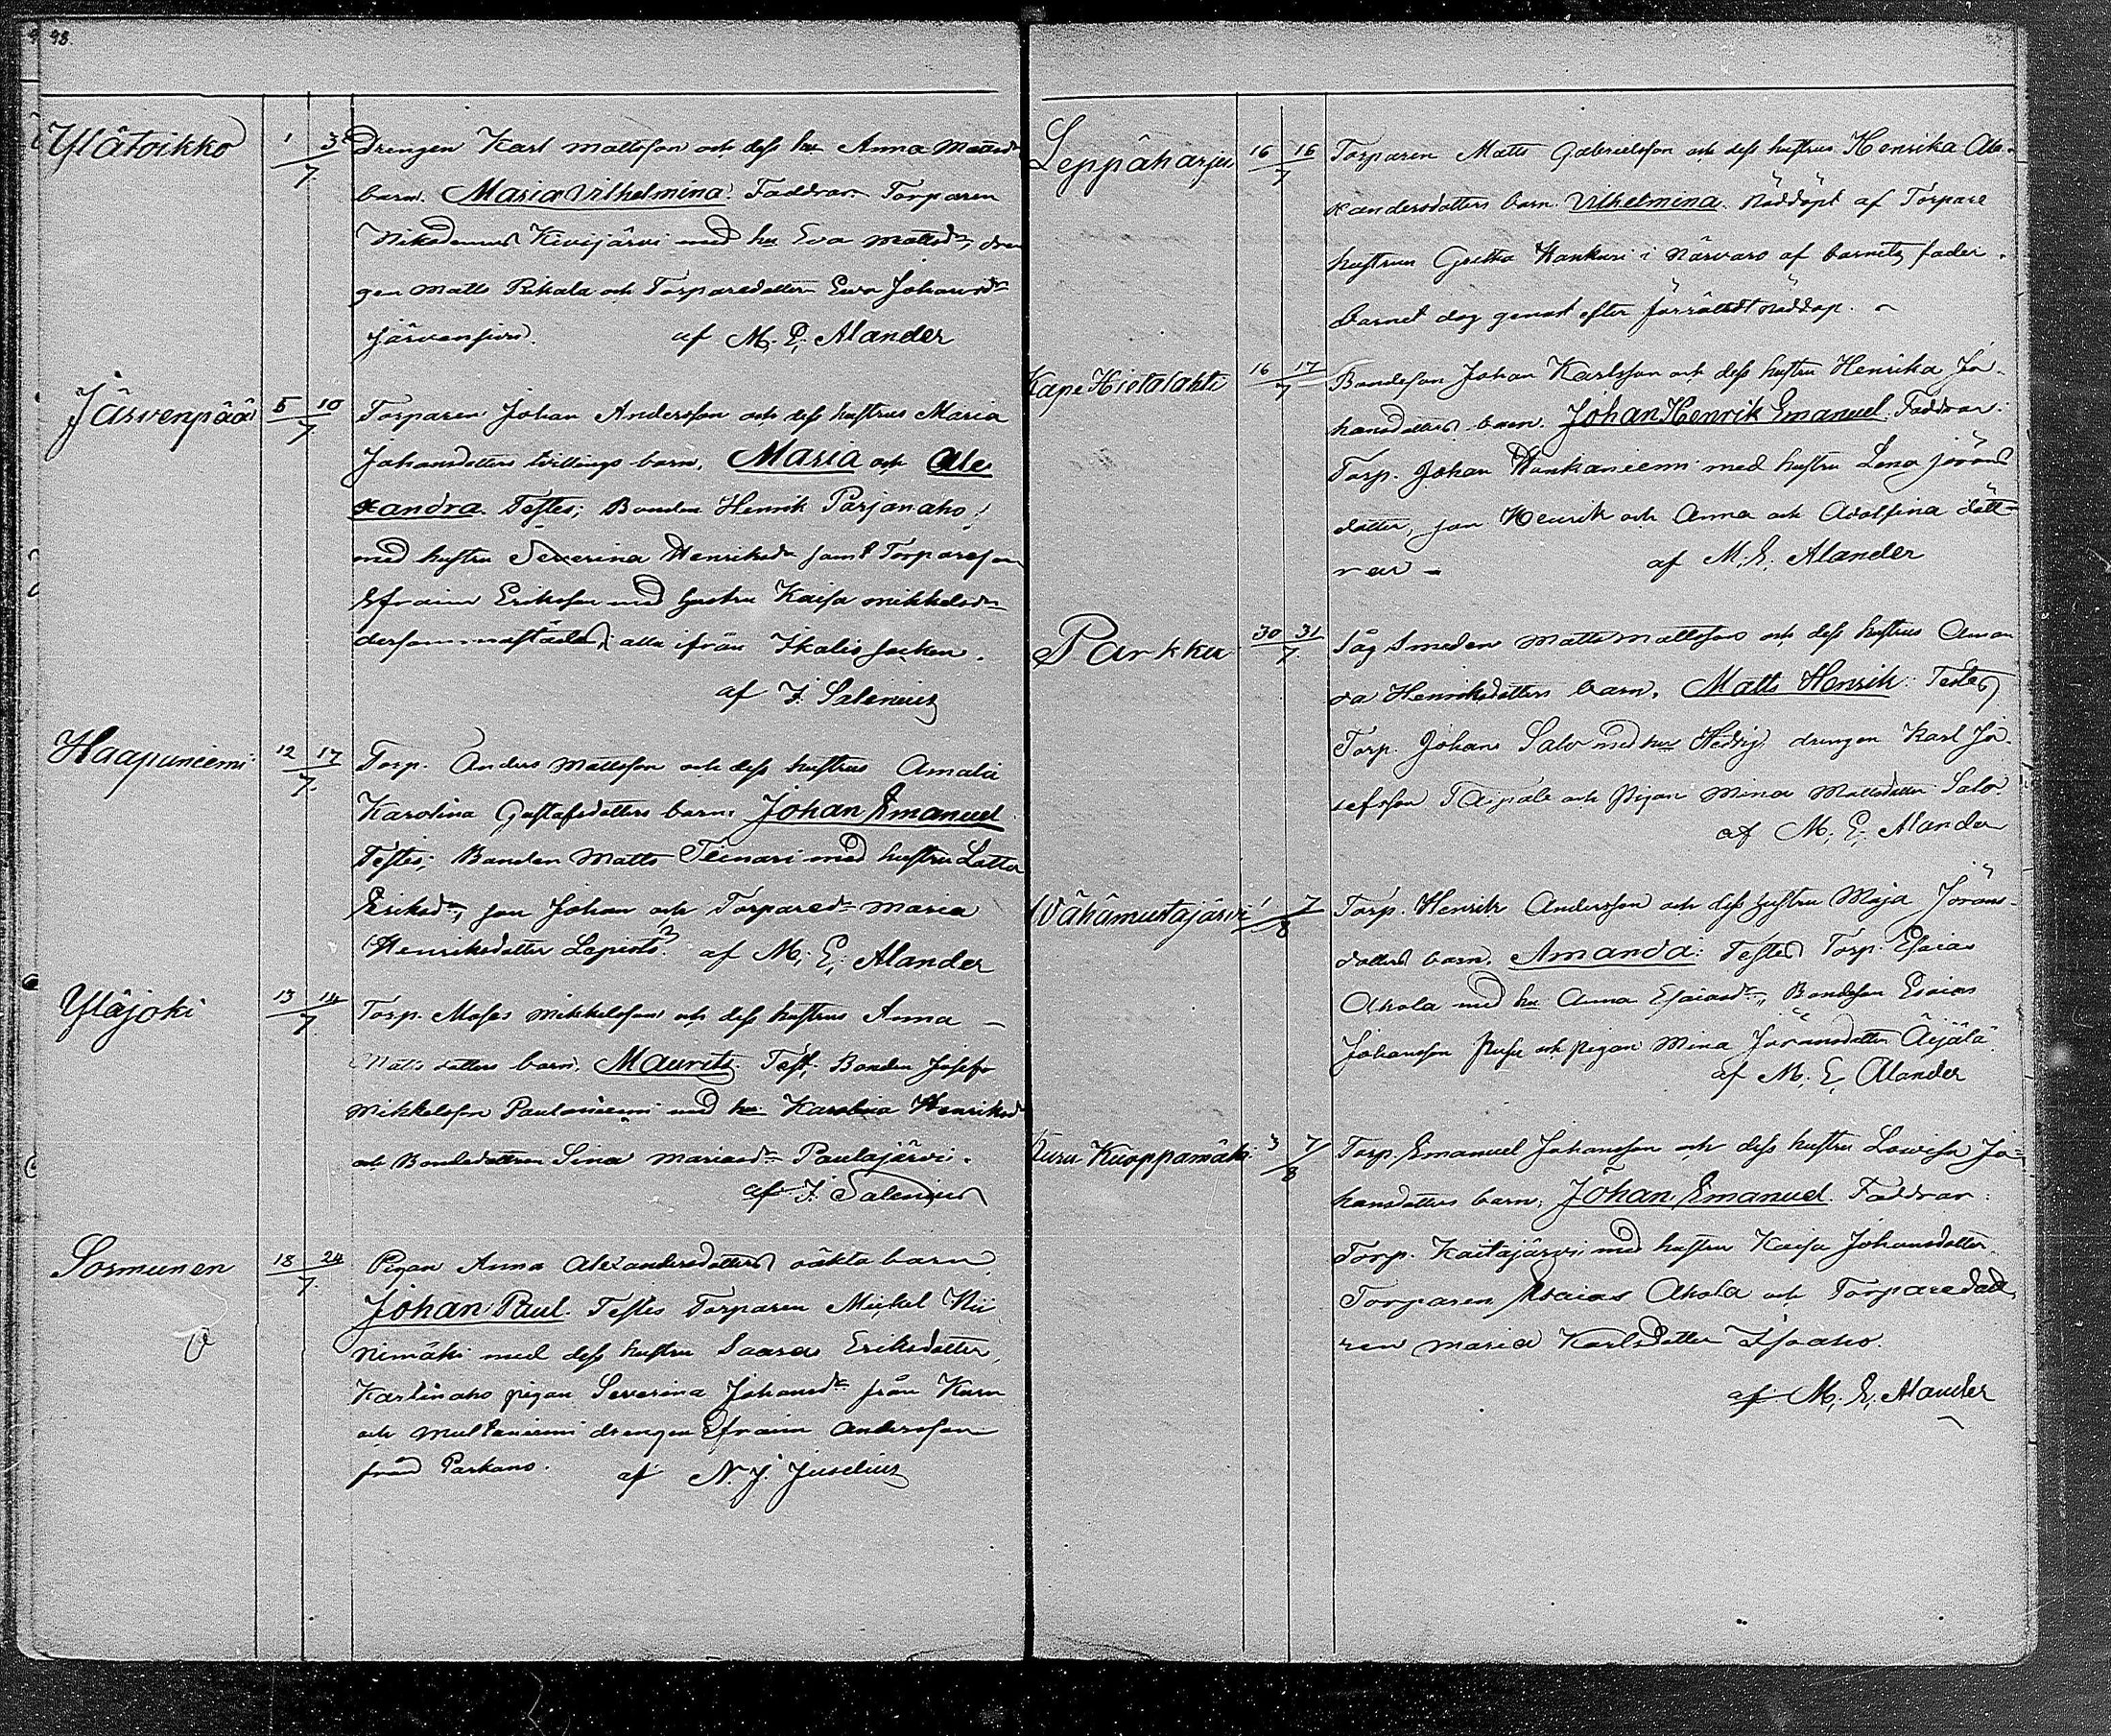 98.
Ylätoikko 1 3 7 Drengen Karl Mattsson och dess hu Anna Mattsdr
barn. Maria Vilhelmina. Faddrar. Torparen
Nikodemus Kivijärvi med hu Eva Mattsdr, dren
gen Matts Pihala och Torparedottern Eva Johansdr
Järvensivu. af M. E. Alander
Järvenpää 5 10 7 Torparen Johan Andersson och dess hustrus Maria
Johansdotters tvillings barn, Maria och Ale
xandra. Testes; Bonden Henrik Parjanaho
med hustru Severina Henriksdr samt Torpareson
Efraim Eriksson med hustru Kaisa Mikkelsdr
dersammastädes, alla ifrån Ikalis socken.
af F. Salenius
Haapaniemi 12 17 7. Torp. Anders Mattsson och dess hustrus Amalia
Karolina Gustafsdotters barn. Johan Emanuel
Testes; Bonden Matts Teinari med hustru Lotta
Eriksdr, son Johan och Torparedr Maria
Henriksdotter af M. E. Alander
Yläjoki 13 14 7 Torp. Moses Mikkelsson och dess hustrus Anna
Matts dotters barn, Maurits. Test; Bonden Josef
Mikkelsson Paulaniemi med hu Karolina Henriksd
och Bondedottren Sina Mariasdr Paulajärvi.
af F. Salenius
Sormunen 18 24 7. Pigan Anna Alexandersdotters oäkta barn
Johan Paul. Testes Torparen Mickel Nii
nimäki med dess hustru Saara Eriksdotter,
pigan Severina Johansdr från Kuru
och Multaniemi drengen Efraim Andersson
från Parkano. af N. J. Juselius
Leppäharju 16 16 7 Torparen Matts Gabrielsson och dess hustrus Henrika Ale-
xandersdotters barn. Vilhelmina. Nöddöpt af Torpare
hustrun Greta Kankuri i närvaro af barnets fader.
Barnet dog genast efter förrättadt nöddop.
Kape Hietalahti 16 17 7 Bondeson Johan Karlsson och dess hustru Henrika Jo-
hansdotters barn. Johan Henrik Emanuel. Faddrar:
Torp. Johan med hustru Lena Jörans
dotter, son Henrik och Anna och Adolfina dött-
rar - af M. E. Alander
Parkku 30 31 7. Såg Smeden Matts Mattsson och dess hustrus Aman
da Henriksdotters barn. Matts Henrik. Testes
Torp. Johan Salo med hu Hedvig, drengen Karl Jo-
sefsson Taipale och Pigan Mina Mattsdotter Salo.
af M. E. Alander
Vähämustajärvi 1 7 8 Torp. Henrik Andersson och dess hustru Maja Jörans-
dotters barn. Amanda. Testes Torp. Esaias
Ahola med hu Anna Esaiasdr, Bondeson Esaias
Johansson och pigan Mina Jöransdotter Äijälä.
af M. E. Alander
Kuru Kuoppamäki 3 7 8 Torp. Emanuel Johansson och dess hustru Lowisa Jo-
hansdotters barn; Johan Emanuel. Faddrar:
Torp. Kaitajärvi med hustru Kaisa Johansdotter.
Torparen Esaias Ahola och Torparedott
ren Maria Karlsdotter Isoaho.
af M. E. Alander